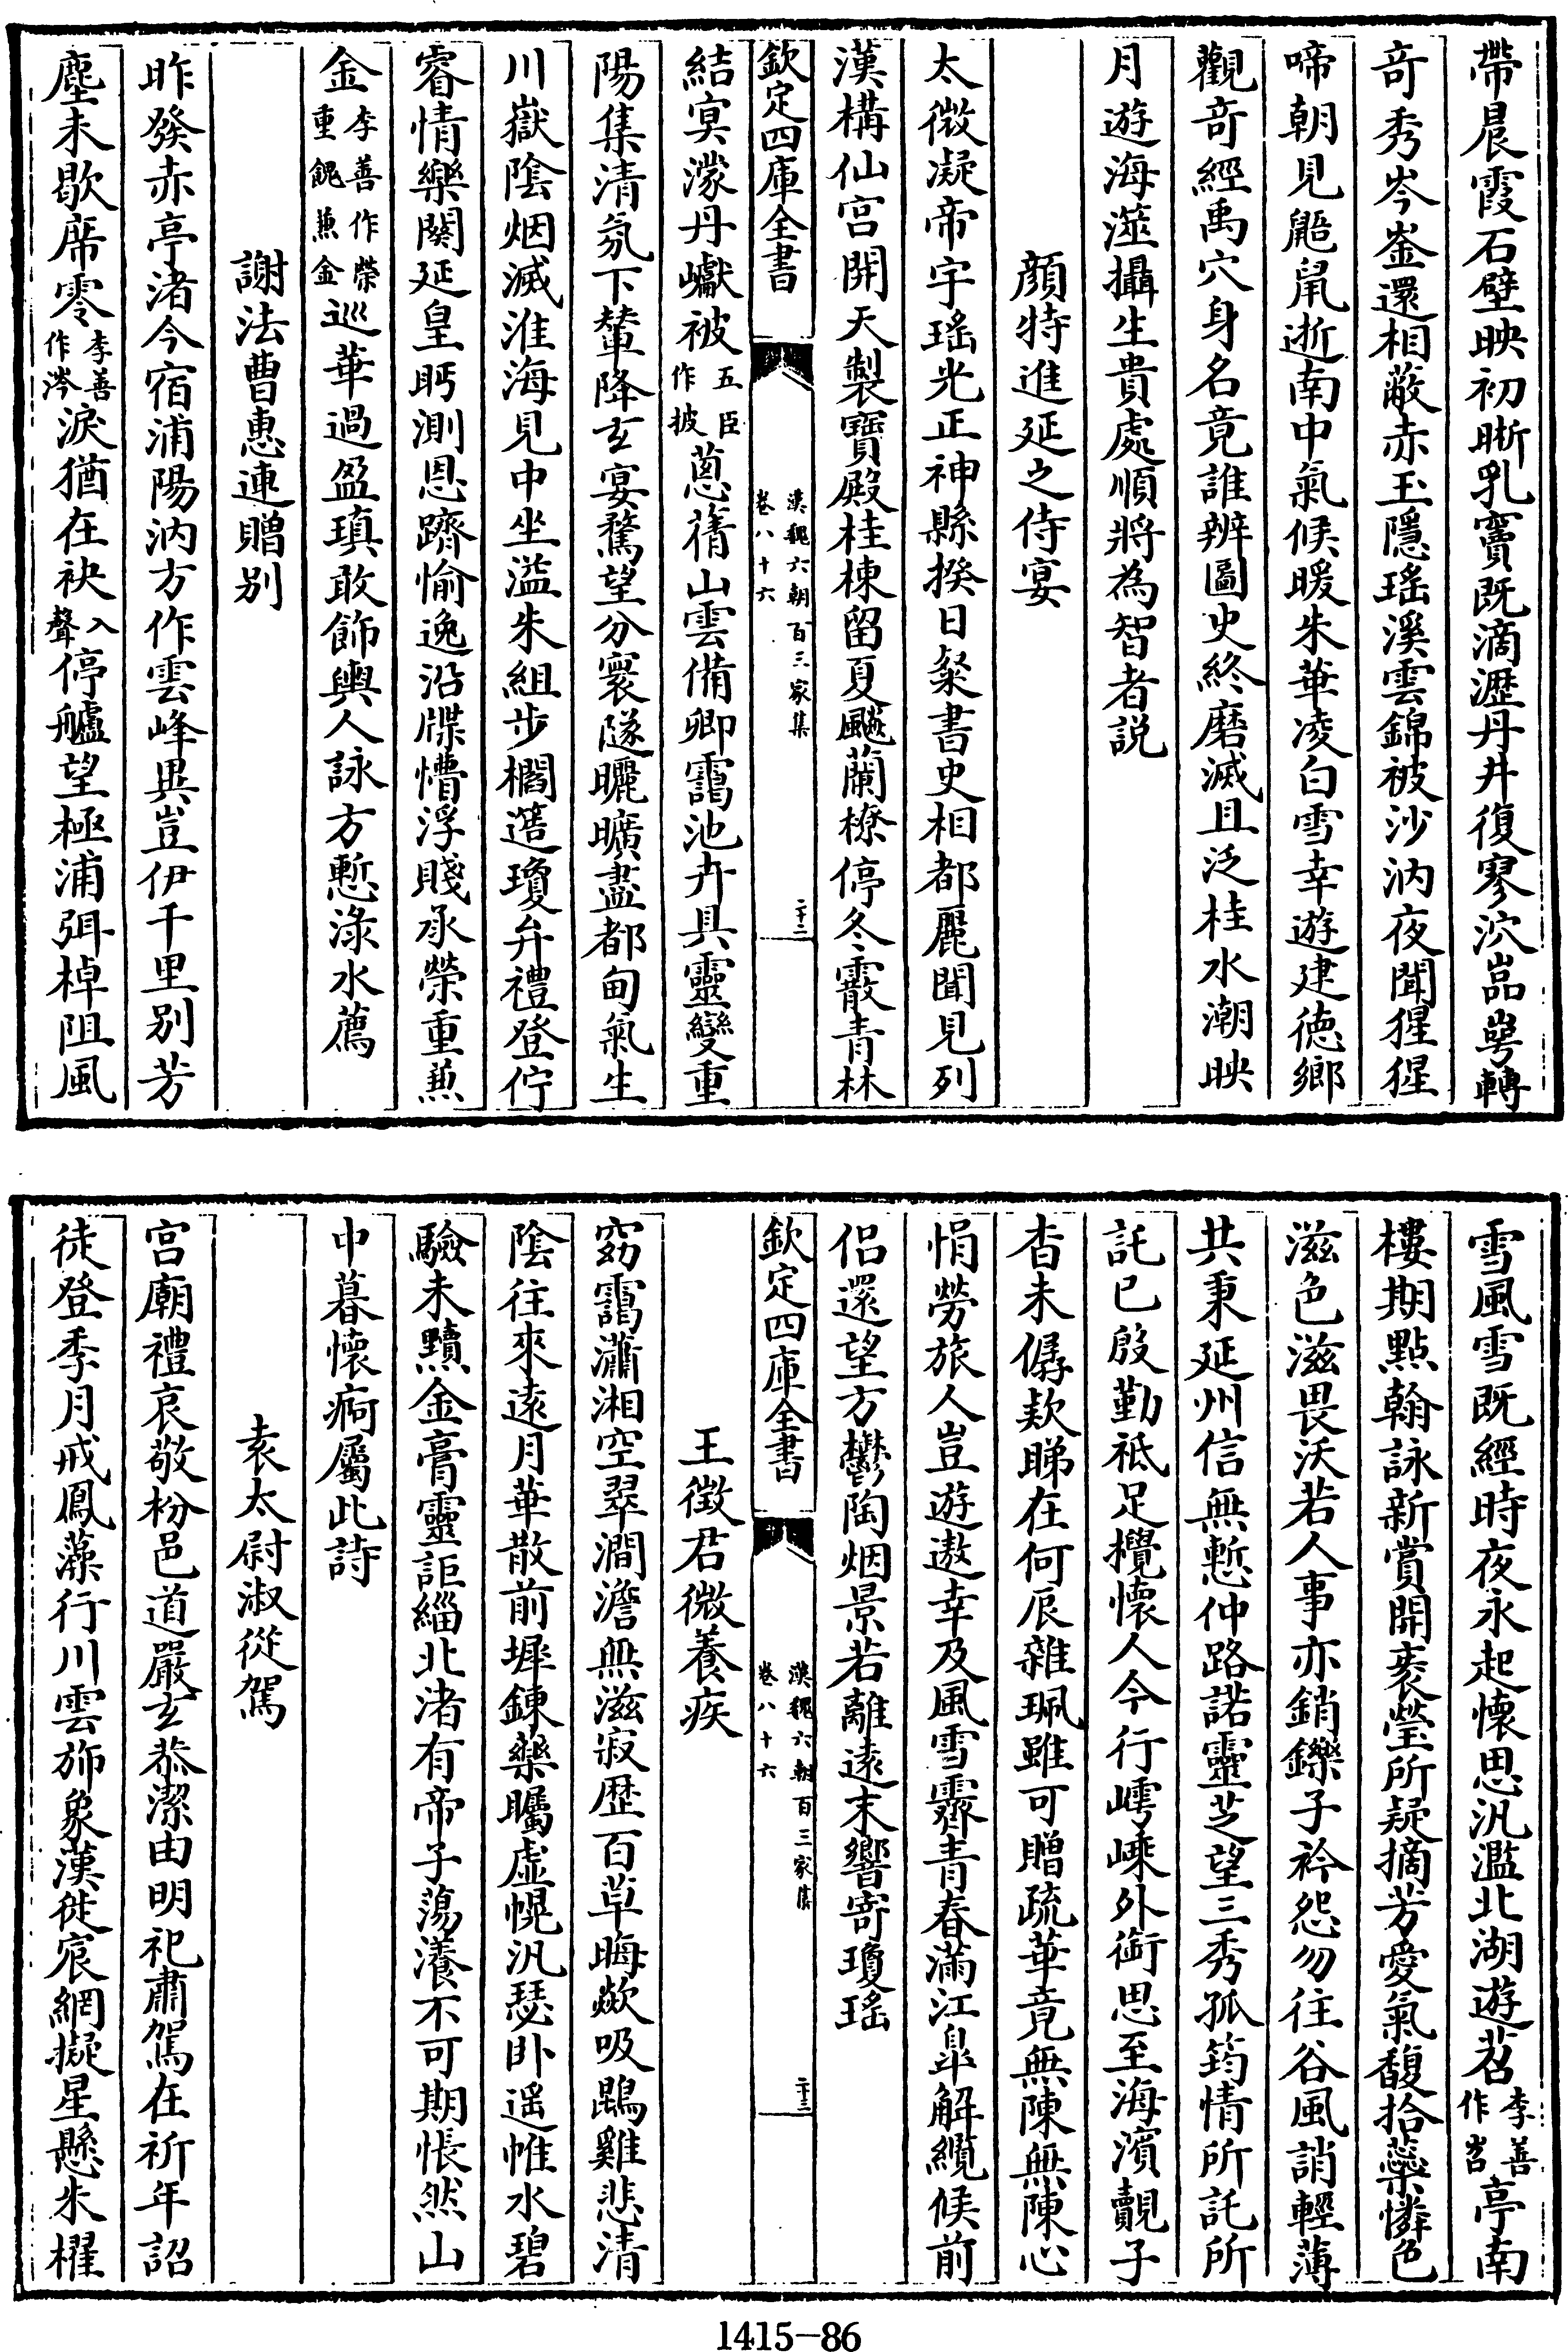 帶晨霞石壁映初晰乳竇既滴瀝丹井復寥泬嵓崿轉
竒秀岑崟還相蔽赤玉隱瑤溪雲錦被沙汭夜聞猩猩
啼朝見鼯鼠逝南中氣候暖朱華凌白雪幸遊建德鄉
觀竒經禹穴身名竟誰辨圖史終磨滅且泛桂水潮映
月遊海澨攝生貴處順將為智者説
顔特進延之侍宴
太微凝帝宇瑤光正神縣揆日粲書史相都麗聞見列
漢構仙宫開天製寶殿桂棟留夏飈蘭橑停冬霰青林
欽定四庫全書
漢魏六朝百三家集
卷八十六
二十二
結㝠濛丹巘被五臣作披蔥蒨山雲備卿靄池卉具靈變重
陽集清氛下輦降玄宴騖望分寰隧矖曠盡都甸氣生
川嶽陰烟滅淮海見中坐溢朱組步櫩簉瓊弁禮登佇
睿情樂闋延皇眄測恩躋愉逸沿牒懵浮賤承榮重兼
金李善作榮重餽兼金巡華過盈瑱敢飾輿人詠方慙渌水薦
謝法曹惠連贈别
昨發赤亭渚今宿浦陽汭方作雲峰異豈伊千里别芳
塵未歇席零李善作涔淚猶在袂入聲停艫望極浦弭棹阻風
雪風雪既經時夜永起懷思汎濫北湖遊苕李善作岧亭南
樓期點翰詠新賞開袠瑩所疑摘芳愛氣馥拾蘂憐色
滋色滋畏沃若人事亦銷鑠子衿怨勿往谷風誚輕薄
共秉延州信無慙仲路諾靈芝望三秀孤筠情所託所
託已殷勤祇足攪懷人今行嶀嵊外銜思至海濱覿子
杳未僝欵睇在何辰雜珮雖可贈疏華竟無陳無陳心
悁勞旅人豈遊遨幸及風雪霽青春滿江臯解纜候前
侣還望方鬱陶烟景若離逺末響寄瓊瑤
欽定四庫全書
漢魏六朝百三家集
卷八十六
二十三
王徴君微養疾
窈靄瀟湘空翠澗澹無滋寂歴百草晦歘吸鵾雞悲清
陰往來逺月華散前墀錬藥矚虚幌汎瑟卧遥帷水碧
驗未黷金膏靈詎緇北渚有帝子蕩瀁不可期悵然山
中暮懷痾屬此詩
袁太尉淑從駕
宫廟禮哀敬枌邑道嚴玄恭潔由明祀肅駕在祈年詔
徒登季月戒鳳藻行川雲斾象漢徙宸網擬星懸朱櫂
1415-86